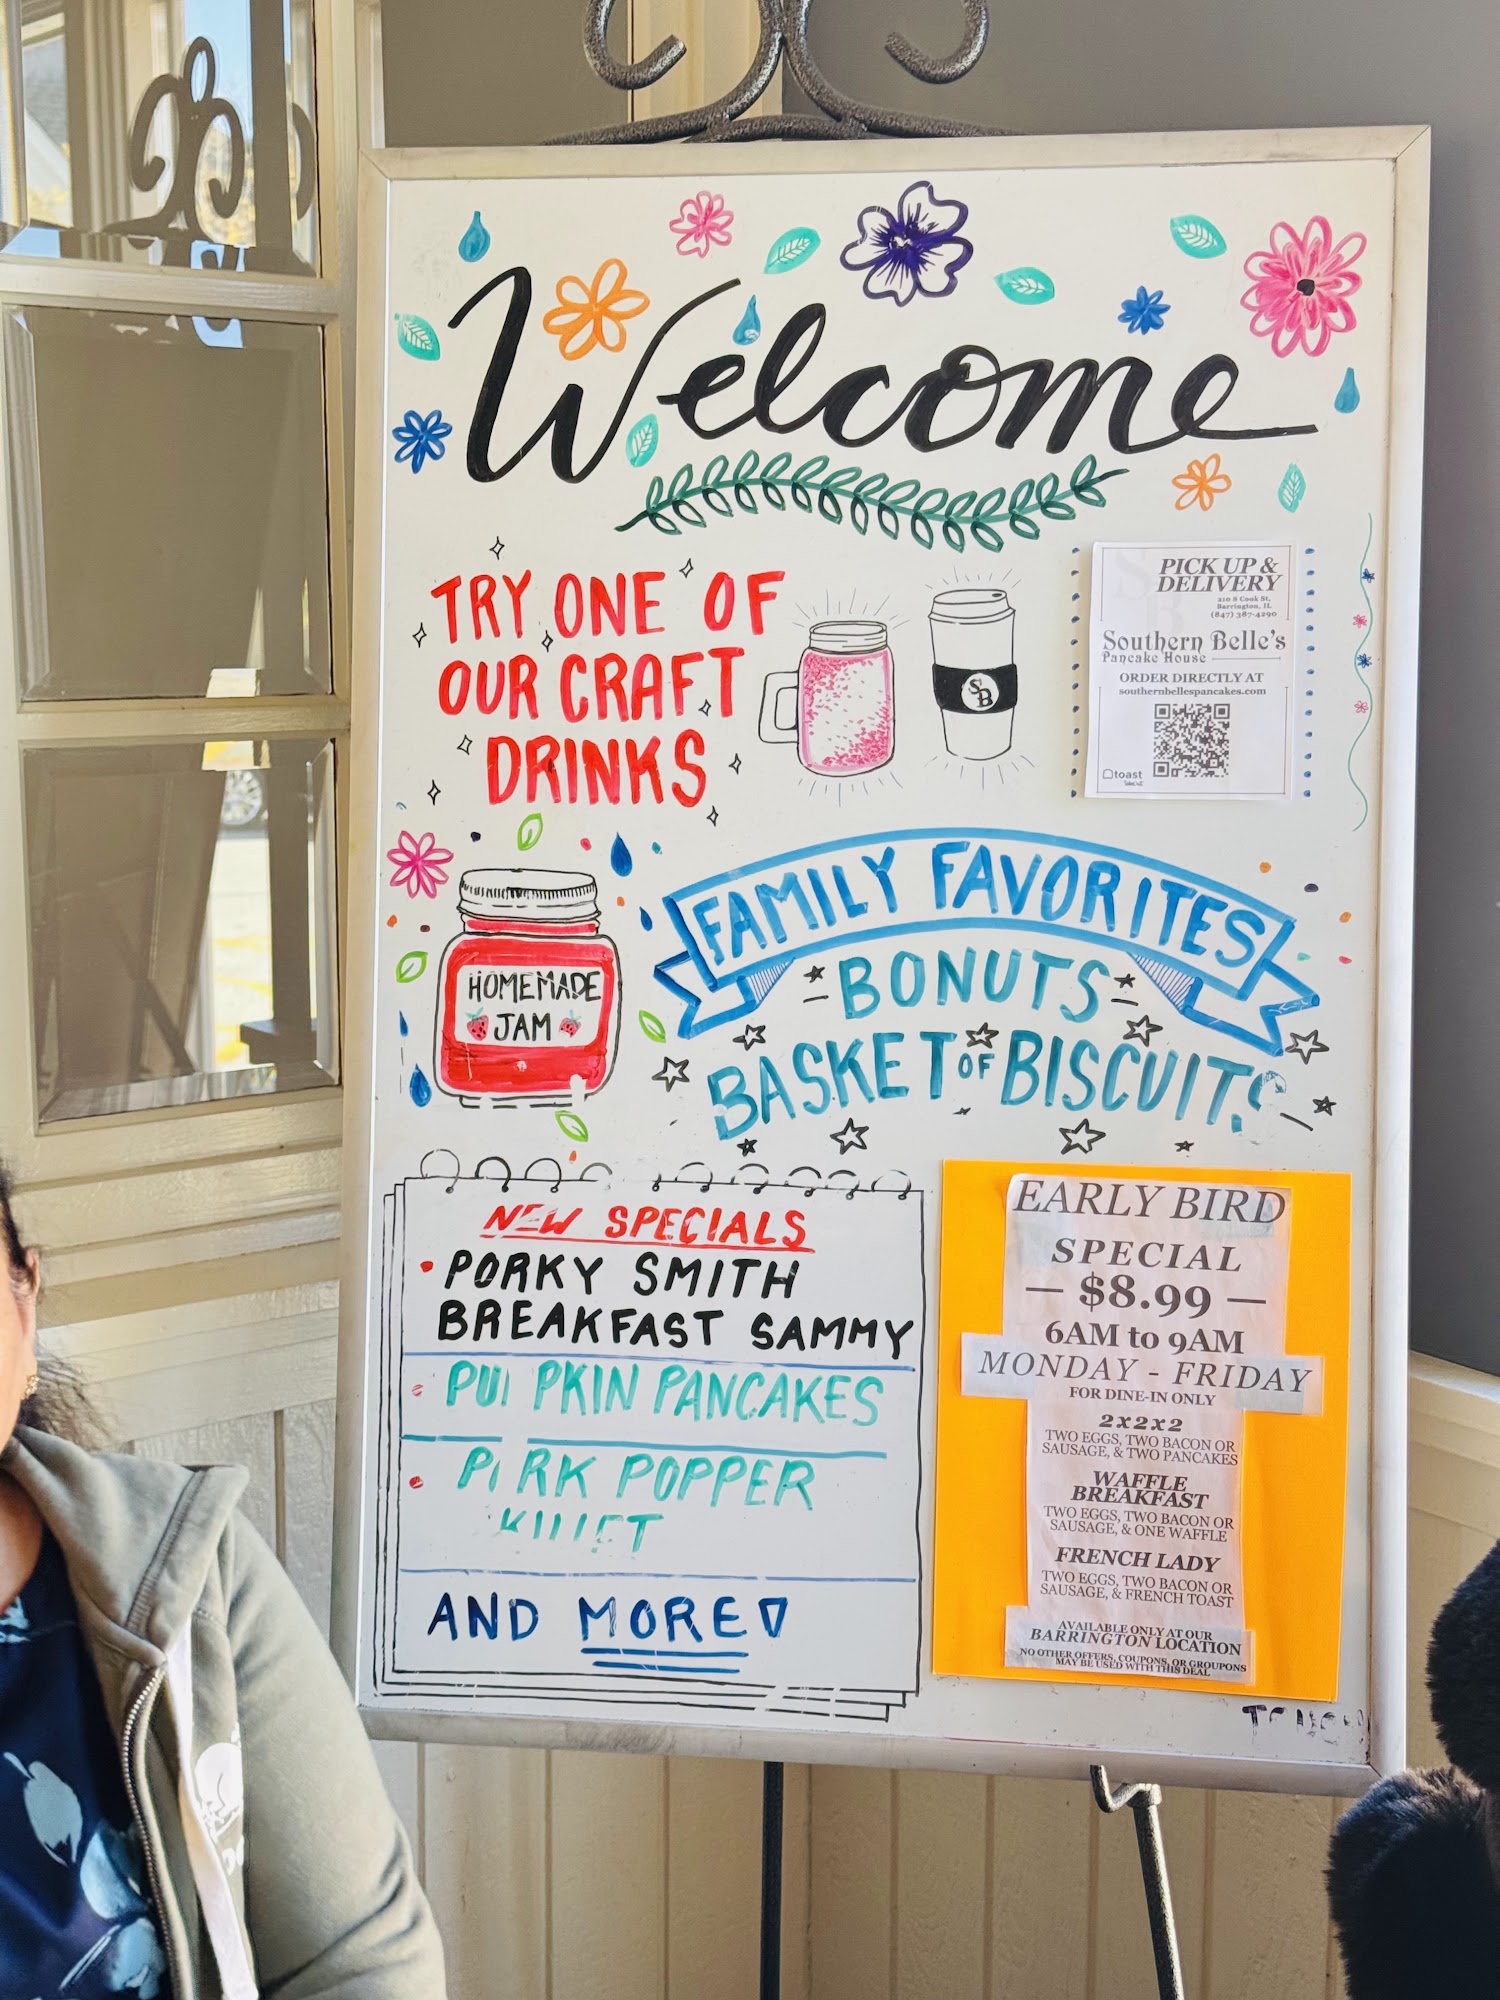 Welcome
TRY ONE OF
OUR CRAFT
DRINKS
SB
PICK UP &
DELIVERY
210 S Cook St,
Barrington, IL
(847) 387-4290
Southern Belle's
Pancake House
ORDER DIRECTLY AT
southernbellespancakes.com
toast
HOMEMADE
JAM
FAMILY FAVORITES
-BONUTS-
BASKET OF BISCUITS
NEW SPECIALS
• PORKY SMITH
BREAKFAST SAMMY
• PU PKIN PANCAKES
• POPPER
AND MORE
EARLY BIRD
SPECIAL
— $8.99 —
6AM to 9AM
MONDAY - FRIDAY
FOR DINE-IN ONLY
2x2x2
TWO EGGS, TWO BACON OR
SAUSAGE, & TWO PANCAKES
WAFFLE
BREAKFAST
TWO EGGS, TWO BACON OR
SAUSAGE, & ONE WAFFLE
FRENCH LADY
TWO EGGS, TWO BACON OR
SAUSAGE, & FRENCH TOAST
AVAILABLE ONLY AT OUR
BARRINGTON LOCATION
NO OTHER OFFERS, COUPONS, OR GROUPONS
MAY BE USED WITH THIS DEAL